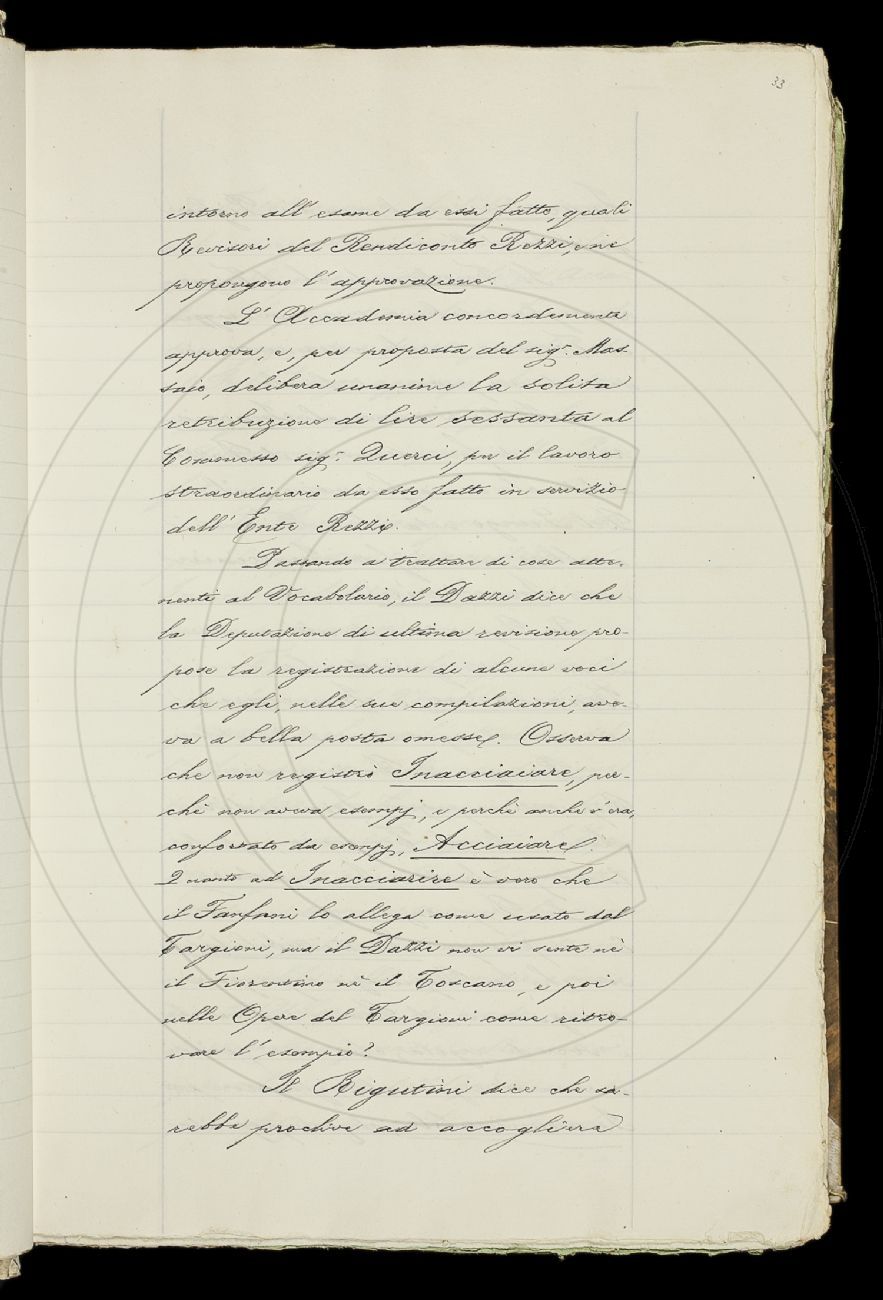 33
intorno all' esame da essi fatto, quali
Revisori del Rendiconto Rezzi, e ne
propongono l' approvazione.
L' Accademia concordemente
approva, e, per proposta del sig.r Mas-
saio, delibera unanime la solita
retribuzione di lire sessanta al
Commesso sig.r Querci, per il lavoro
straordinario da esso fatto in servizio
dell' Ente Rezzi.
Passando a trattare di cose atte-
nenti al Vocabolario, il Dazzi dice che
la Deputazione di ultima revisione pro-
pose la registrazione di alcune voci
che egli, nelle sue compilazioni, ave-
va a bella posta omesse. Osserva
che non registrò Inacciaiare, per-
chè non aveva esempj, e perchè anche v' era,
confortato da esempj, Acciaiare.
Quanto ad Inacciarire è vero che
il Fanfani lo allega come usato dal
Targioni, ma il Dazzi non vi sente nè
il Fiorentino nè il Toscano, e poi
nelle Opere del Targioni come ritro-
vare l' esempio?
Il Rigutini dice che sa-
rebbe proclive ad accogliere